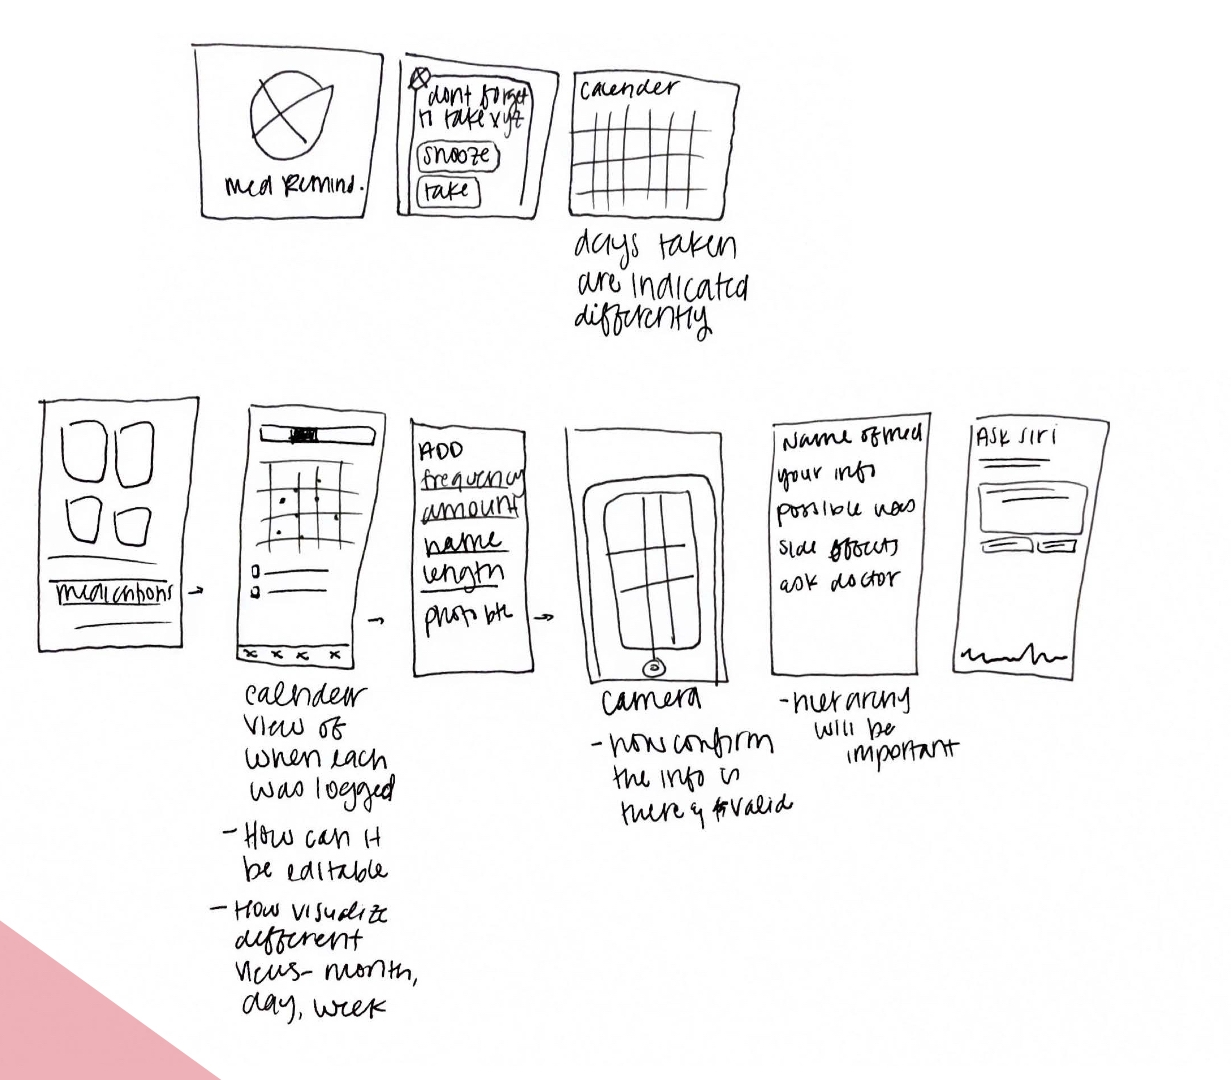 med Remind.
dont forget
to take xyz
snooze
take
calender
days taken
are indicated
differently
medications
calendar
view of
when each
was logged
- How can it
be editable
- How visualize
different
views - month,
day, week
ADD
frequency
amount
name
length
photo btn
camera
- how confirm
the info is
there & valid
Name of med
your info
possible uses
side effects
ask doctor
- hierarchy
will be
important
Ask siri